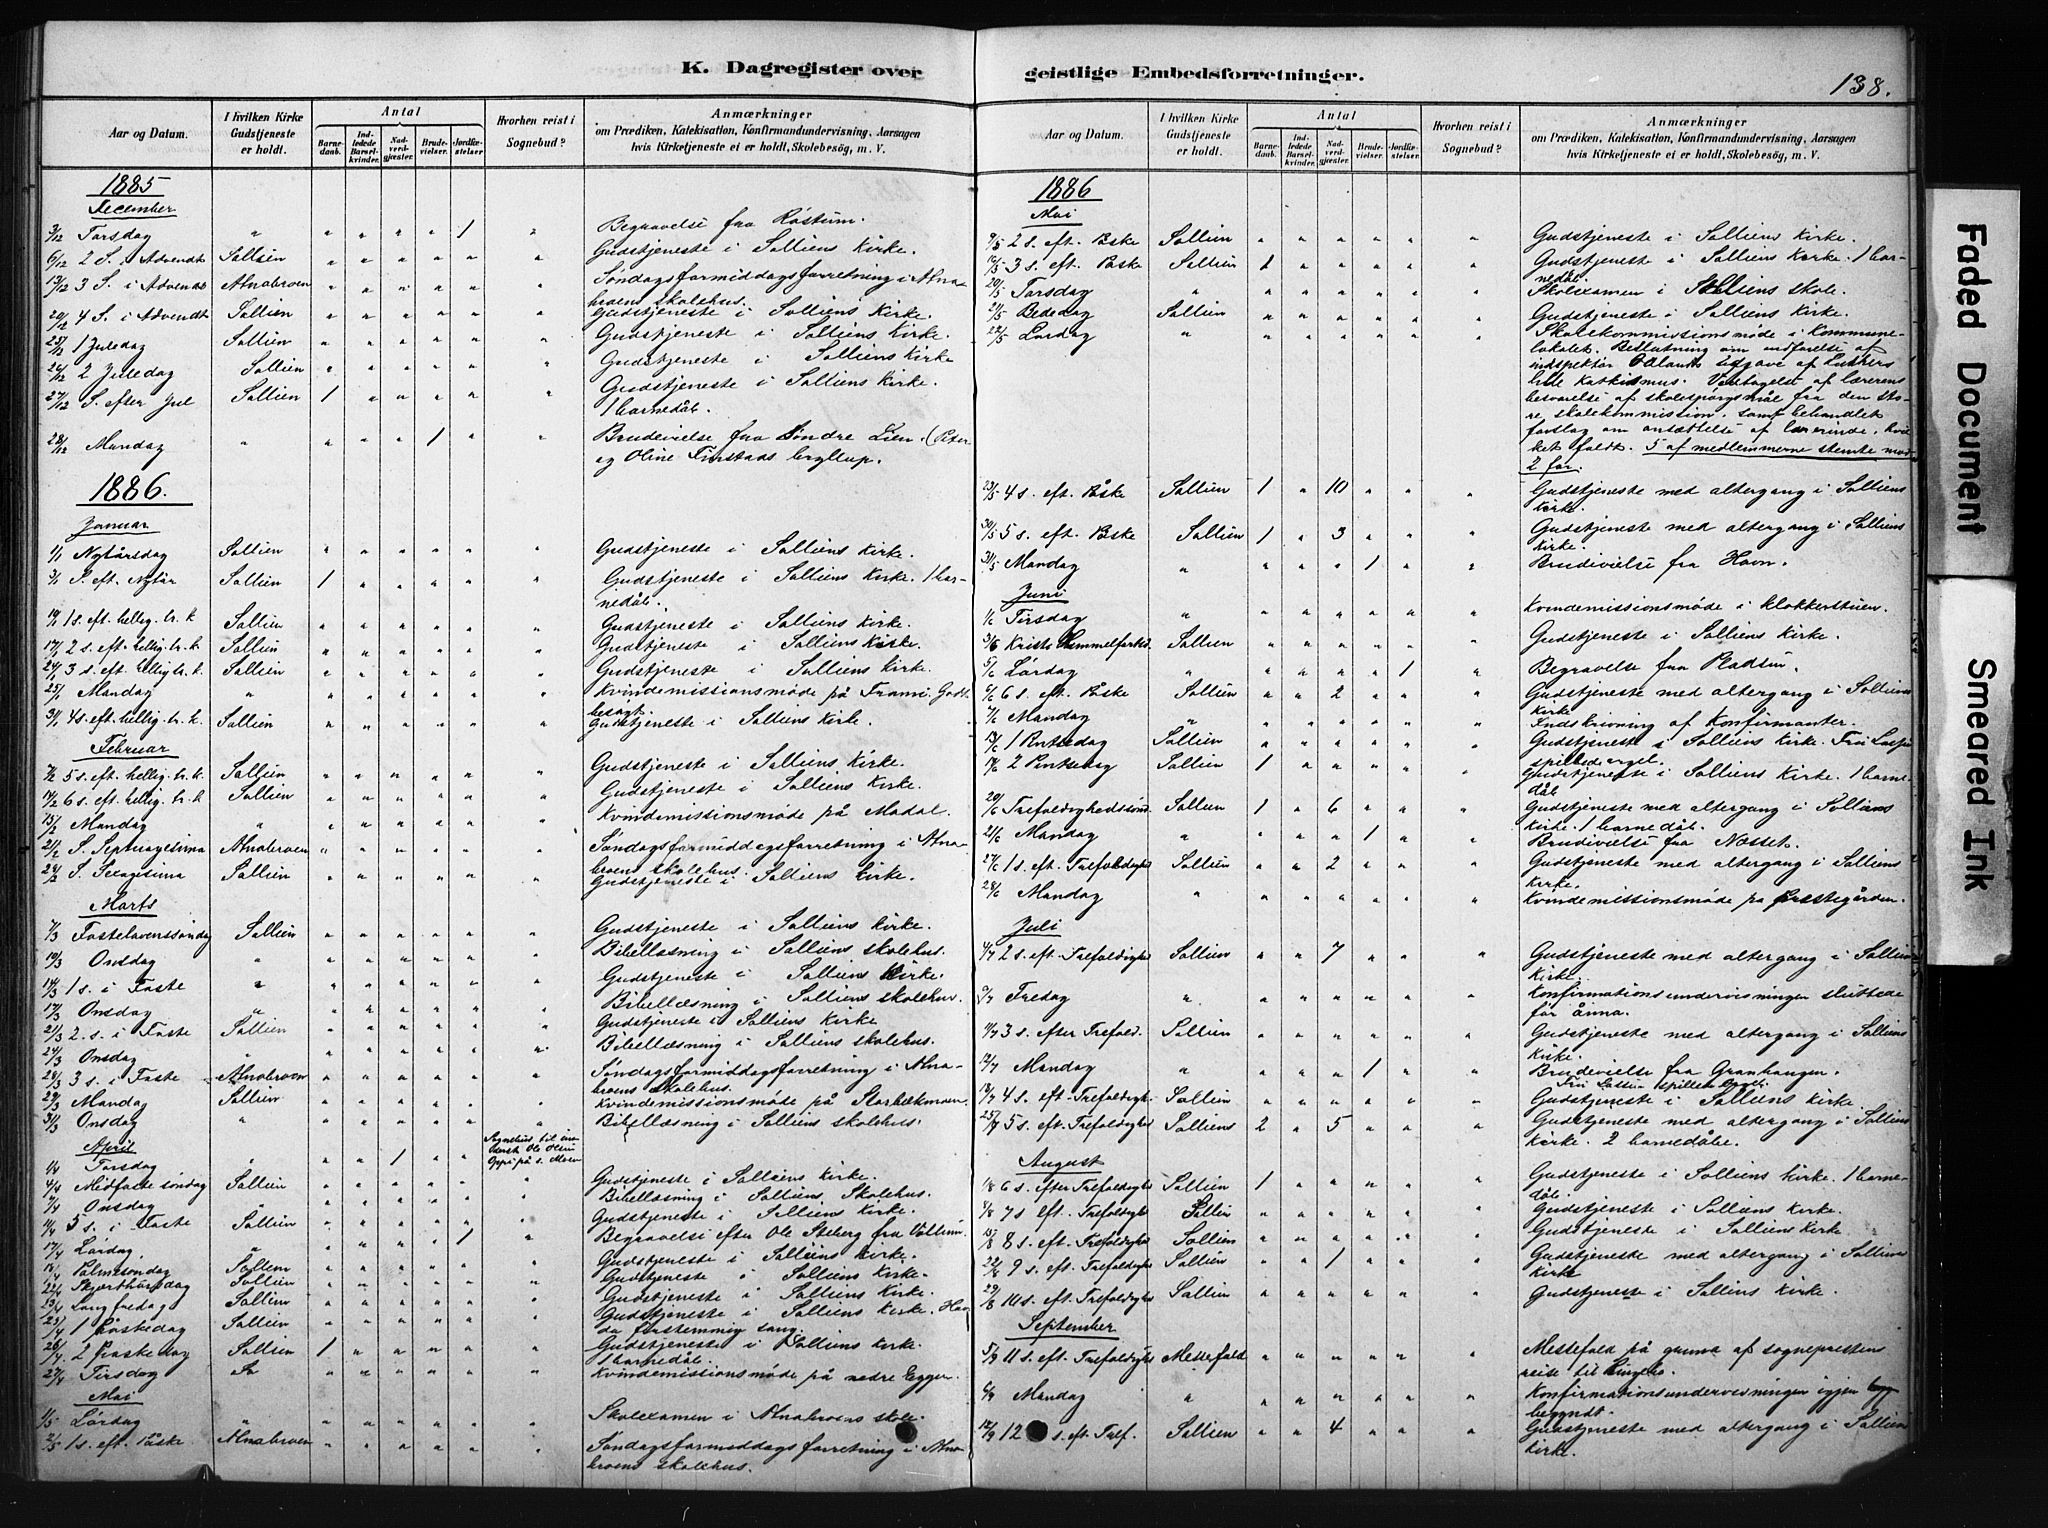 K. Dagregister over
geistlige Embedsforretninger.
138.
Aar og Datum.
I hvilken Kirke Gudstjeneste er holdt.
Antal
Barnedaab.
Indledede Barselkvinder.
Nadverdgjester.
Brudevielser.
Jordfæstelser.
Hvorhen reist i Sognebud?
Anmærkninger
om Prædiken, Katekisation, Konfirmandundervisning, Aarsagen
hvis Kirketjeneste ei er holdt, Skolebesøg, m. V.
1885
December
3/12 Torsdag " " " " " 1 " Begravelse fra
6/12 2 S. i Advendt Sollien " " " " " " Gudstjeneste i Solliens Kirke.
13/12 3 S. i Advendt Atnabroen " " " " " " Søndagsformiddagsforretning i Atna-
broens skolehus.
20/12 4 S. i Advendt Sollien " " " " " " Gudstjeneste i Solliens Kirke.
25/12 1 Juledag Sollien " " " " " " Gudstjeneste i Solliens Kirke.
26/12 2 Juledag Sollien " " " " " " Gudstjeneste i Solliens Kirke
27/12 S. efter Jul Sollien 1 " " " " " Gudstjeneste i Solliens Kirke.
1 barnedåb.
28/12 Mandag " " " " 1 " " Brudevielse fra Søndre Lien. (Peter
og Oline bryllup.
1886.
Januar
1/1 Nytårsdag Sollien " " " " " " Gudstjeneste i Solliens Kirke.
3/1 S. eft. Nytår Sollien 1 " " " " " Gudstjeneste i Solliens Kirke. 1 bar-
nedåb.
10/1 1 s. eft. hellig. tr. k Sollien " " " " " " Gudstjeneste i Solliens Kirke.
17/1 2 s. eft. hellig. tr. k. Sollien " " " " " " Gudstjeneste i Solliens Kirke.
24/1 3 s. eft hellig tr. k. Sollien " " " " " " Gudstjeneste i Solliens Kirke.
25/1 Mandag " " " " " " " Kvindemissionsmøde på Frami. Godt
besøgt.
31/1 4 s. eft. hellig. tr. k. Sollien " " " " " " Gudstjeneste i Solliens Kirke.
Februar
7/2 5 s. eft. hellig. tr. k. Sollien " " " " " " Gudstjeneste i Solliens Kirke.
14/2 6 s. eft. hellig. tr. k Sollien " " " " " " Gudstjeneste i Solliens Kirke.
15/2 Mandag " " " " " " " Kvindemissionsmøde på
21/2 S. Septuagesima Atnabroen " " " " " " Søndagsformiddagsforretning i Atna-
broens skolehus.
28/2 S. Sexagesima Sollien " " " " " " Gudstjeneste i Solliens Kirke.
Marts
7/3 Fastelavenssøndag Sollien " " " " " " Gudstjeneste i Solliens Kirke.
10/3 Onsdag " " " " " " " Bibellæsning i Solliens skolehus.
14/3 1 s. i Faste " " " " " " " Gudstjeneste i Solliens Kirke.
17/3 Onsdag " " " " " " " Bibellæsning i Solliens skolehus.
21/3 2. s. i Faste Sollien " " " " " " Gudstjeneste i Solliens Kirke
24/3 Onsdag " " " " " " " Bibellæsning i Solliens skolehus.
28/3 3 s. i Faste Atnabroen " " " " " " Søndagsformiddagsforretning i Atna-
broens skolehus.
29/3 Mandag Sollien " " " " " " Kvindemissionsmøde på
31/3 Onsdag " " " " " " " Bibellæsning i Solliens skolehus.
April
1/4 Torsdag " " " 1 " " Sognebud til
Ole Olsen
Oppi på s. Moen
4/4 Midfaste søndag Sollien " " " " " " Gudstjeneste i Solliens Kirke.
7/4 Onsdag " " " " " " Bibellæsning i Solliens Skolehus.
11/4 5 s. i Faste Sollien " " " " " " Gudstjeneste i Solliens Kirke.
17/4 Lørdag " " " " " 1 " Begravelse efter Ole fra
18/4 Palmesøndag Sollien " " " " " " Gudstjeneste i Solliens Kirke.
22/4 Skjærthorsdag Sollien " " " " " " Gudstjeneste i Solliens Kirke.
23/4 Langfredag Sollien " " " " " " Gudstjeneste i Solliens Kirke.
25/4 1 Påskedag Sollien " " " " " " Gudstjeneste i Solliens Kirke.
firstemmig sang.
26/4 2 Påskedag Sollien 1 " " " " " Gudstjeneste i Solliens Kirke.
1 barnedåb.
27/4 Tirsdag " " " " " " Kvindemissionsmøde på nedre Eggen
Mai
1/5 Lørdag " " " " " " " Skolexamen i Atnabroens skole.
2/5 1 s. eft. Påske Atnabroen " " " " " " Søndagsformiddagsforretning i Atna-
broens skolehus.
Aar og Datum.
I hvilken Kirke Gudstjeneste er holdt.
Antal
Barnedaab.
Indledede Barselkvinder.
Nadverdgjester.
Brudevielser.
Jordfæstelser.
Hvorhen reist i Sognebud?
Anmærkninger
om Prædiken, Katekisation, Konfirmandundervisning, Aarsagen
hvis Kirketjeneste ei er holdt, Skolebesøg, m. V.
1886
Mai
9/5 2 s. eft. Påske Sollien " " " " " " Gudstjeneste i Solliens Kirke.
16/5 3 s. eft. Påske Sollien 1 " " " " " Gudstjeneste i Solliens Kirke. 1 bar-
nedåb.
20/5 Torsdag " " " " " " " Skolexamen i Solliens skole.
21/5 Bededag Sollien " " " " " " Gudstjeneste i Solliens Kirke.
22/5 Lørdag " " " " " " " Skolekommissionsmøde i Kommune-
lokalet. Beslutning om indførelse af
udgave af Luthers
lille katkismus. Vedtagelse af lærerens
besvarelse af skolespørgsmål fra den sto-
re skolekommission, samt behandlet
forslag om ansættelse af lærerinde, hvil-
ket faldt. 5 af medlemmerne stemte mod
2 for.
23/5 4 s. eft. Påske Sollien 1 " 10 " " " Gudstjeneste med altergang i Solliens
kirke.
30/5 5 s. eft. Påske Sollien 1 " 3 " " " Gudstjeneste med altergang i Solliens
Kirke.
31/5 Mandag " " " " 1 " " Brudevielse fra Hovn.
Juni
1/6 Tirsdag " " " " " " " Kvindemissionsmøde i klokkerstuen.
3/6 Kristi Himmelfartsd. Sollien " " " " " " Gudstjeneste i Solliens Kirke.
5/6 Lørdag " " " " " 1 " Begravelse fra Pladsen.
6/6 6 s. eft. Påske Sollien " " 2 " " " Gudstjeneste med altergang i Solliens
Kirke
7/6 Mandag " " " " " " " Indskrivning af Konfirmanter.
13/6 1 Pintsedag Sollien " " " " " " Gudstjeneste i Solliens Kirke.
spillede orgel.
14/6 2 Pintsedag Sollien 1 " " " " " Gudstjeneste i Solliens Kirke. 1 barne-
dåb
20/6 Trefoldighedssøn. Sollien 1 " 6 " " " Gudstjeneste med altergang i Solliens
Kirke. 1 barnedåb.
21/6 Mandag " " " " 1 " " Brudevielse fra Næsset.
27/6 1 s. eft. Trefoldighd Sollien " " 2 " " " Gudstjeneste med altergang i Solliens
Kirke.
28/6 Mandag " " " " " " " Kvindemissionsmøde på Præstegården.
Juli
4/7 2 s. eft. Trefoldighd Sollien " " 7 " " " Gudstjeneste med altergang i Sollien
Kirke.
9/7 Fredag " " " " " " " Konfirmationsundervisningen sluttede
før ånna.
11/7 3 s. efter Trefold. Sollien " " " " " " Gudstjeneste med altergang i Solliens
Kirke.
12/7 Mandag " " " " 1 " " Brudevielse fra Granhaugen.
18/7 4 s. eft. Trefoldigh. Sollien " " " " " " Gudstjeneste i Solliens Kirke.
25/7 5 s. eft. Trefoldighd Solliens 2 " 5 " " " Gudstjeneste med altergang i Solliens
Kirke. 2 barnedåbe.
August
1/8 6 s. efter Trefoldighd Sollien 1 " " " " " Gudstjeneste i Solliens Kirke. 1 barne-
dåb.
8/8 7 s. eft. Trefoldighd Sollien " " " " " " Gudstjeneste i Solliens Kirke.
15/8 8 s. eft. Trefoldighd Sollien " " " " " " Gudstjeneste i Solliens Kirke
22/8 9 s. eft. Trefoldighd Sollien " " 1 " " " Gudstjeneste med altergang i Solliens
Kirke
29/8 10 s. eft. Trefoldighd Sollien " " " " " " Gudstjeneste i Solliens Kirke.
September
5/9 11 s. eft. Trefoldighd Messefald " " " " " " Messefald på grund af sogneprestens
reise til Ringebo.
6/9 Mandag " " " " " " " Konfirmationsundervisningen igjen
begyndt.
12/9 12 s. eft. Tref. Sollien " " 4 " " " Gudstjeneste med altergang i Solliens
Kirke.
Faded Document
Smeared Ink